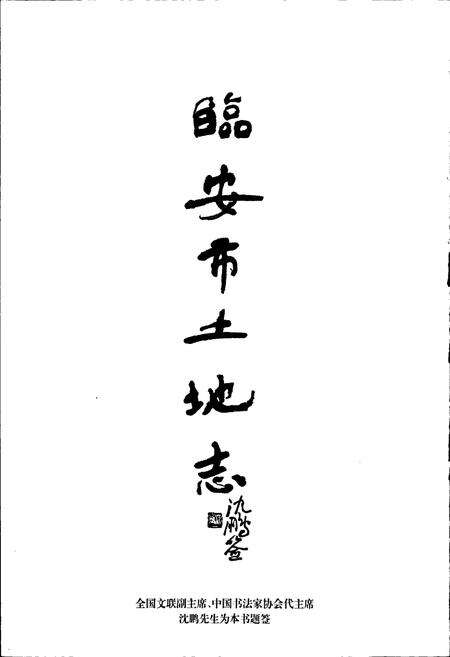 臨安市土地志
沈鹏签
全国文联副主席、中国书法家协会代主席
沈鹏先生为本书题签